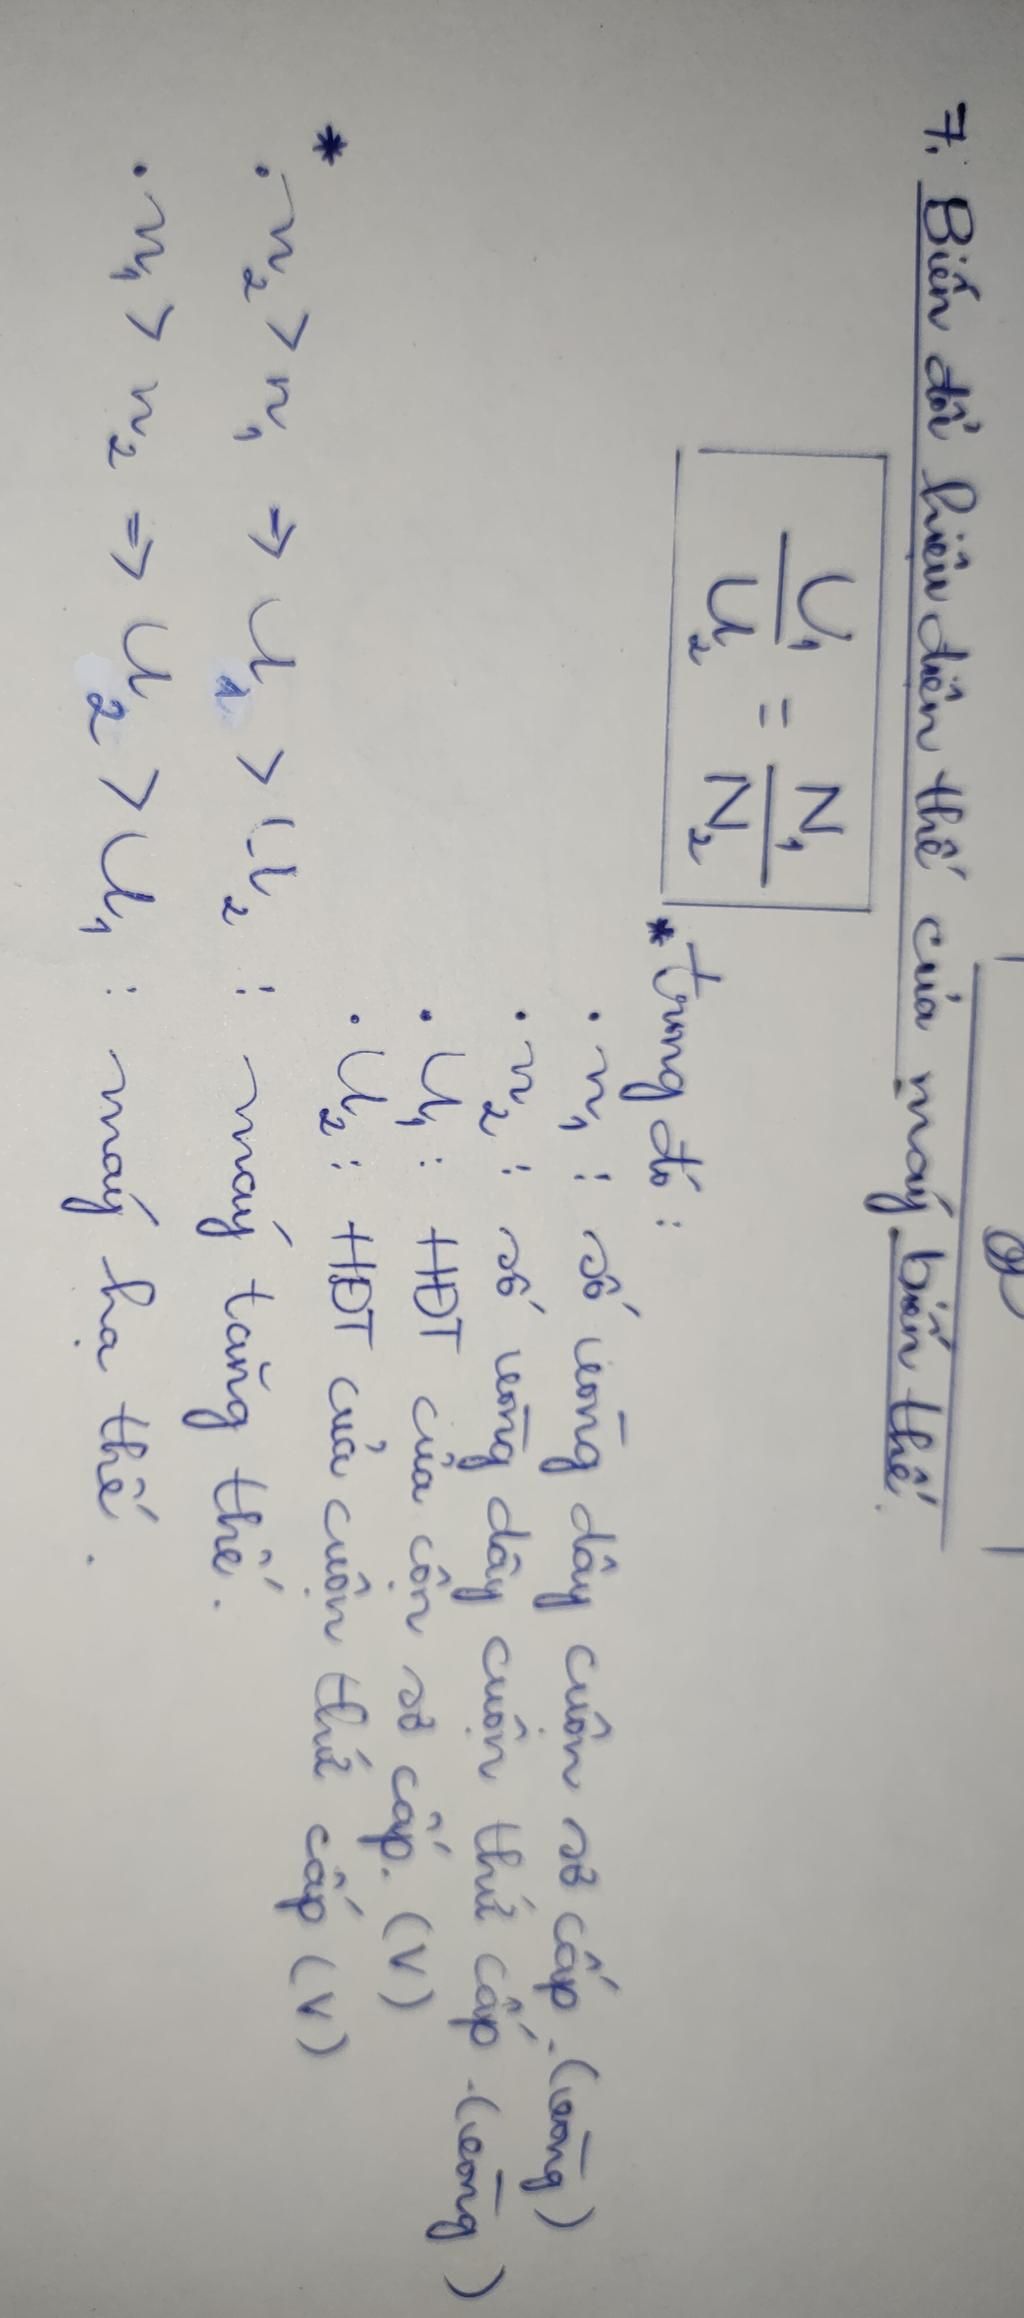 7. Biến đổi hiệu điện thế của máy biến thế.
U₁/U₂ = N₁/N₂
* trong đó:
• n₁: số vòng dây cuộn sơ cấp. (vòng)
• n₂: số vòng dây cuộn thứ cấp. (vòng)
• U₁: HĐT của cộn sơ cấp. (V)
• U₂: HĐT của cuộn thứ cấp (V)
*
• n₂ > n₁ => U₁ > U₂: máy tăng thế.
• n₁ > n₂ => U₂ > U₁: máy hạ thế.